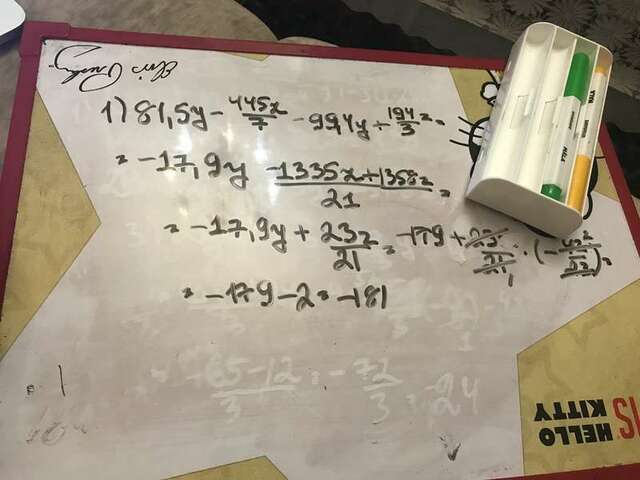 1) 81,5y - 445x/7 - 99,4y + 194z/3 =
= -17,9y -1335x+1358z/21 =
= -17,9y + 23z/21 = -179 + 23/21 : (
= -179-2 = -181
-65-12/3 = -72/3 = -24
HELLO
KITTY
IS